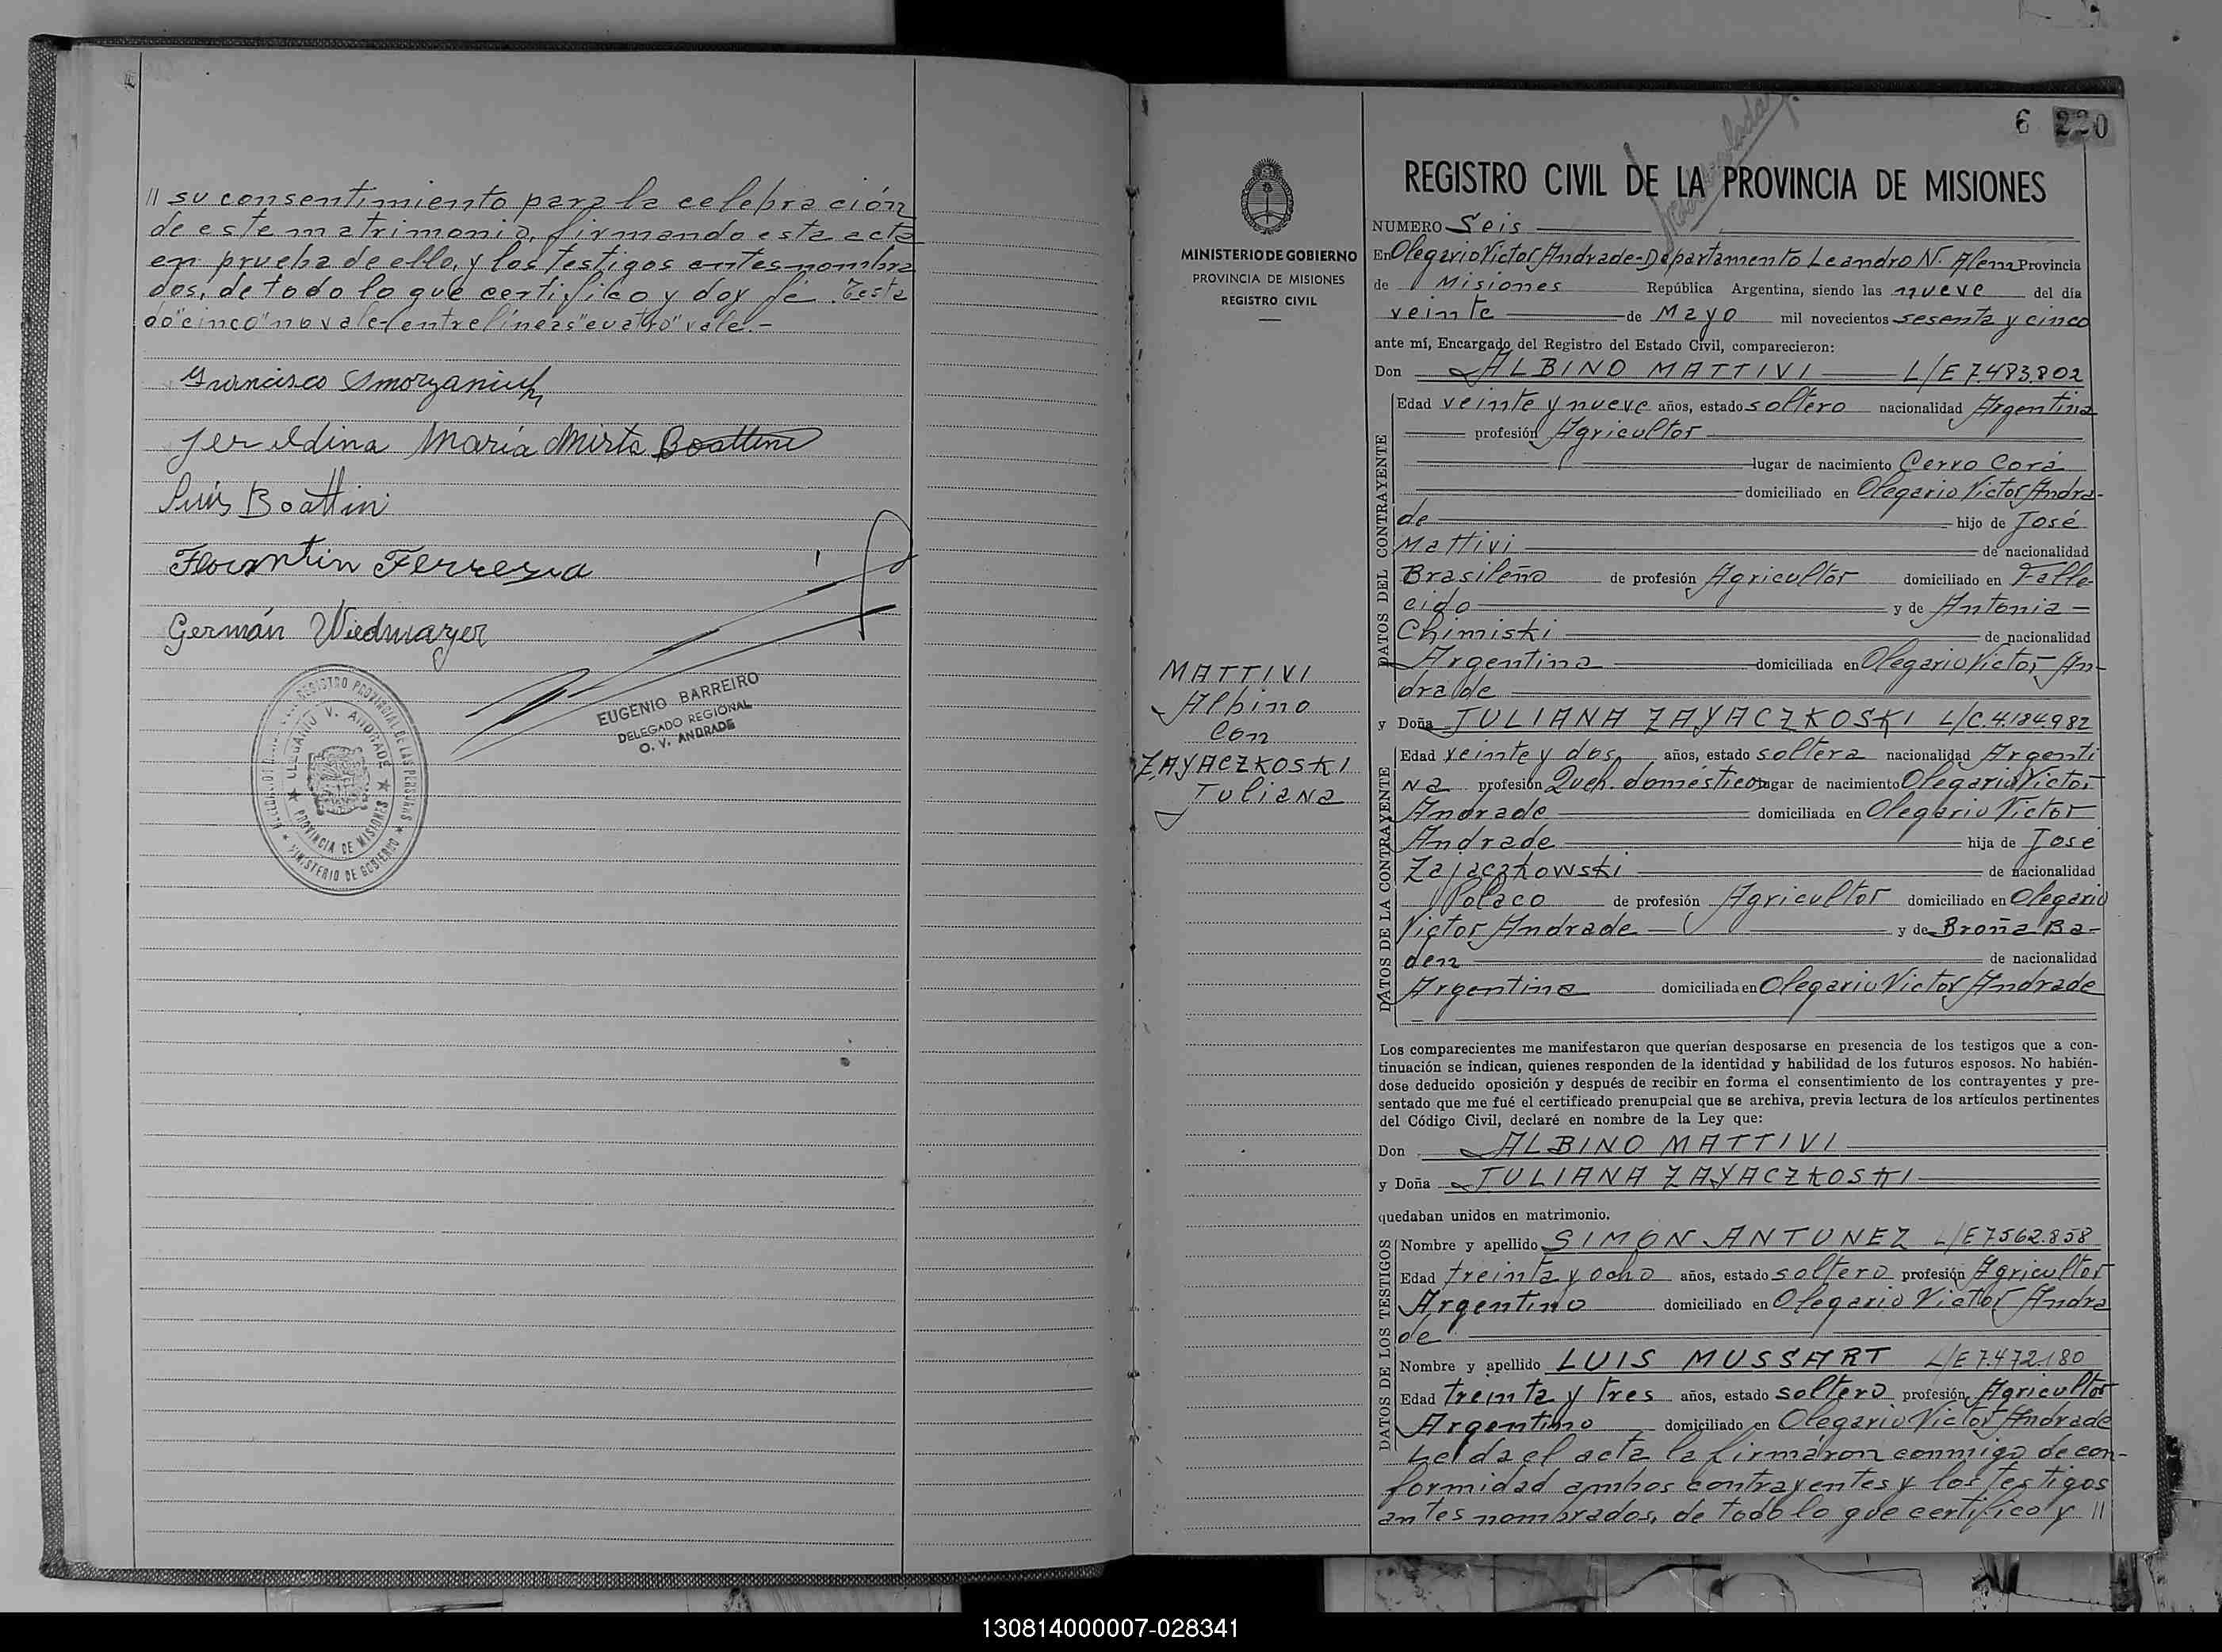 // su consentimiento para la celebración
de este matrimonio, firmando esta acta
en prueba de ello, y los testigos antes nombra
dos, de todo lo que certifico y doy fé. Testa
do "cinco" no vale-entrelíneas "cuatro" vale.-
Francisco Smorzaniuk
Jer eldina Maria Mirta Boattini
Luis Boattin
Florentin Ferreyra
Germán Wiedmayer
EUGENIO BARREIRO
DELEGADO REGIONAL
O. V. ANDRADE
REGISTRO PROVINCIAL DE LAS PERSONAS
OLEGARIO V. ANDRADE
PROVINCIA DE MISIONES
MINISTERIO DE GOBIERNO
MINISTERIO DE GOBIERNO
PROVINCIA DE MISIONES
REGISTRO CIVIL
MATTIVI
Albino
Con
ZAYACZKOSKI
Juliana
6 220
REGISTRO CIVIL DE LA PROVINCIA DE MISIONES
NUMERO Seis
En Olegario Victor Andrade-Departamento Leandro N. Alem Provincia
de Misiones República Argentina, siendo las nueve del día
veinte de Mayo mil novecientos sesenta y cinco
ante mí, Encargado del Registro del Estado Civil, comparecieron:
Don ALBINO MATTIVI L/E 7.483.802
DATOS DEL CONTRAYENTE
Edad veinte y nueve años, estado soltero nacionalidad Argentina
profesión Agricultor
lugar de nacimiento Cerro Corá
domiciliado en Olegario Victor Andra-
de hijo de José
Mattivi de nacionalidad
Brasileño de profesión Agricultor domiciliado en Falle-
cido y de Antonia
Chimiski de nacionalidad
Argentina domiciliada en Olegario Victor An-
drade
y Doña JULIANA ZAYACZKOSKI L/C. 4.184.982
DATOS DE LA CONTRAYENTE
Edad veinte y dos años, estado soltera nacionalidad Argenti
na profesión Queh. domésticos lugar de nacimiento Olegario Victor
Andrade domiciliada en Olegario Victor
Andrade hija de José
Zajaczkowski de nacionalidad
Polaco de profesión Agricultor domiciliado en Olegario
Victor Andrade y de Broña Ba-
den de nacionalidad
Argentina domiciliada en Olegario Victor Andrade
Los comparecientes me manifestaron que querían desposarse en presencia de los testigos que a con-
tinuación se indican, quienes responden de la identidad y habilidad de los futuros esposos. No habién-
dose deducido oposición y después de recibir en forma el consentimiento de los contrayentes y pre-
sentado que me fué el certificado prenupcial que se archiva, previa lectura de los artículos pertinentes
del Código Civil, declaré en nombre de la Ley que:
Don ALBINO MATTIVI
y Doña JULIANA ZAYACZKOSKI
quedaban unidos en matrimonio.
DATOS DE LOS TESTIGOS
Nombre y apellido SIMON ANTUNEZ L/E 7562.858
Edad treinta y ocho años, estado soltero profesión Agricultor
Argentino domiciliado en Olegario Victor Andra
de
Nombre y apellido LUIS MUSSART L/E 7.472.180
Edad treinta y tres años, estado soltero profesión Agricultor
Argentino domiciliado en Olegario Victor Andrade
Leída el acta la firmaron conmigo de con-
formidad ambos contrayentes y los testigos
antes nombrados, de todo lo que certifico y //
130814000007-028341